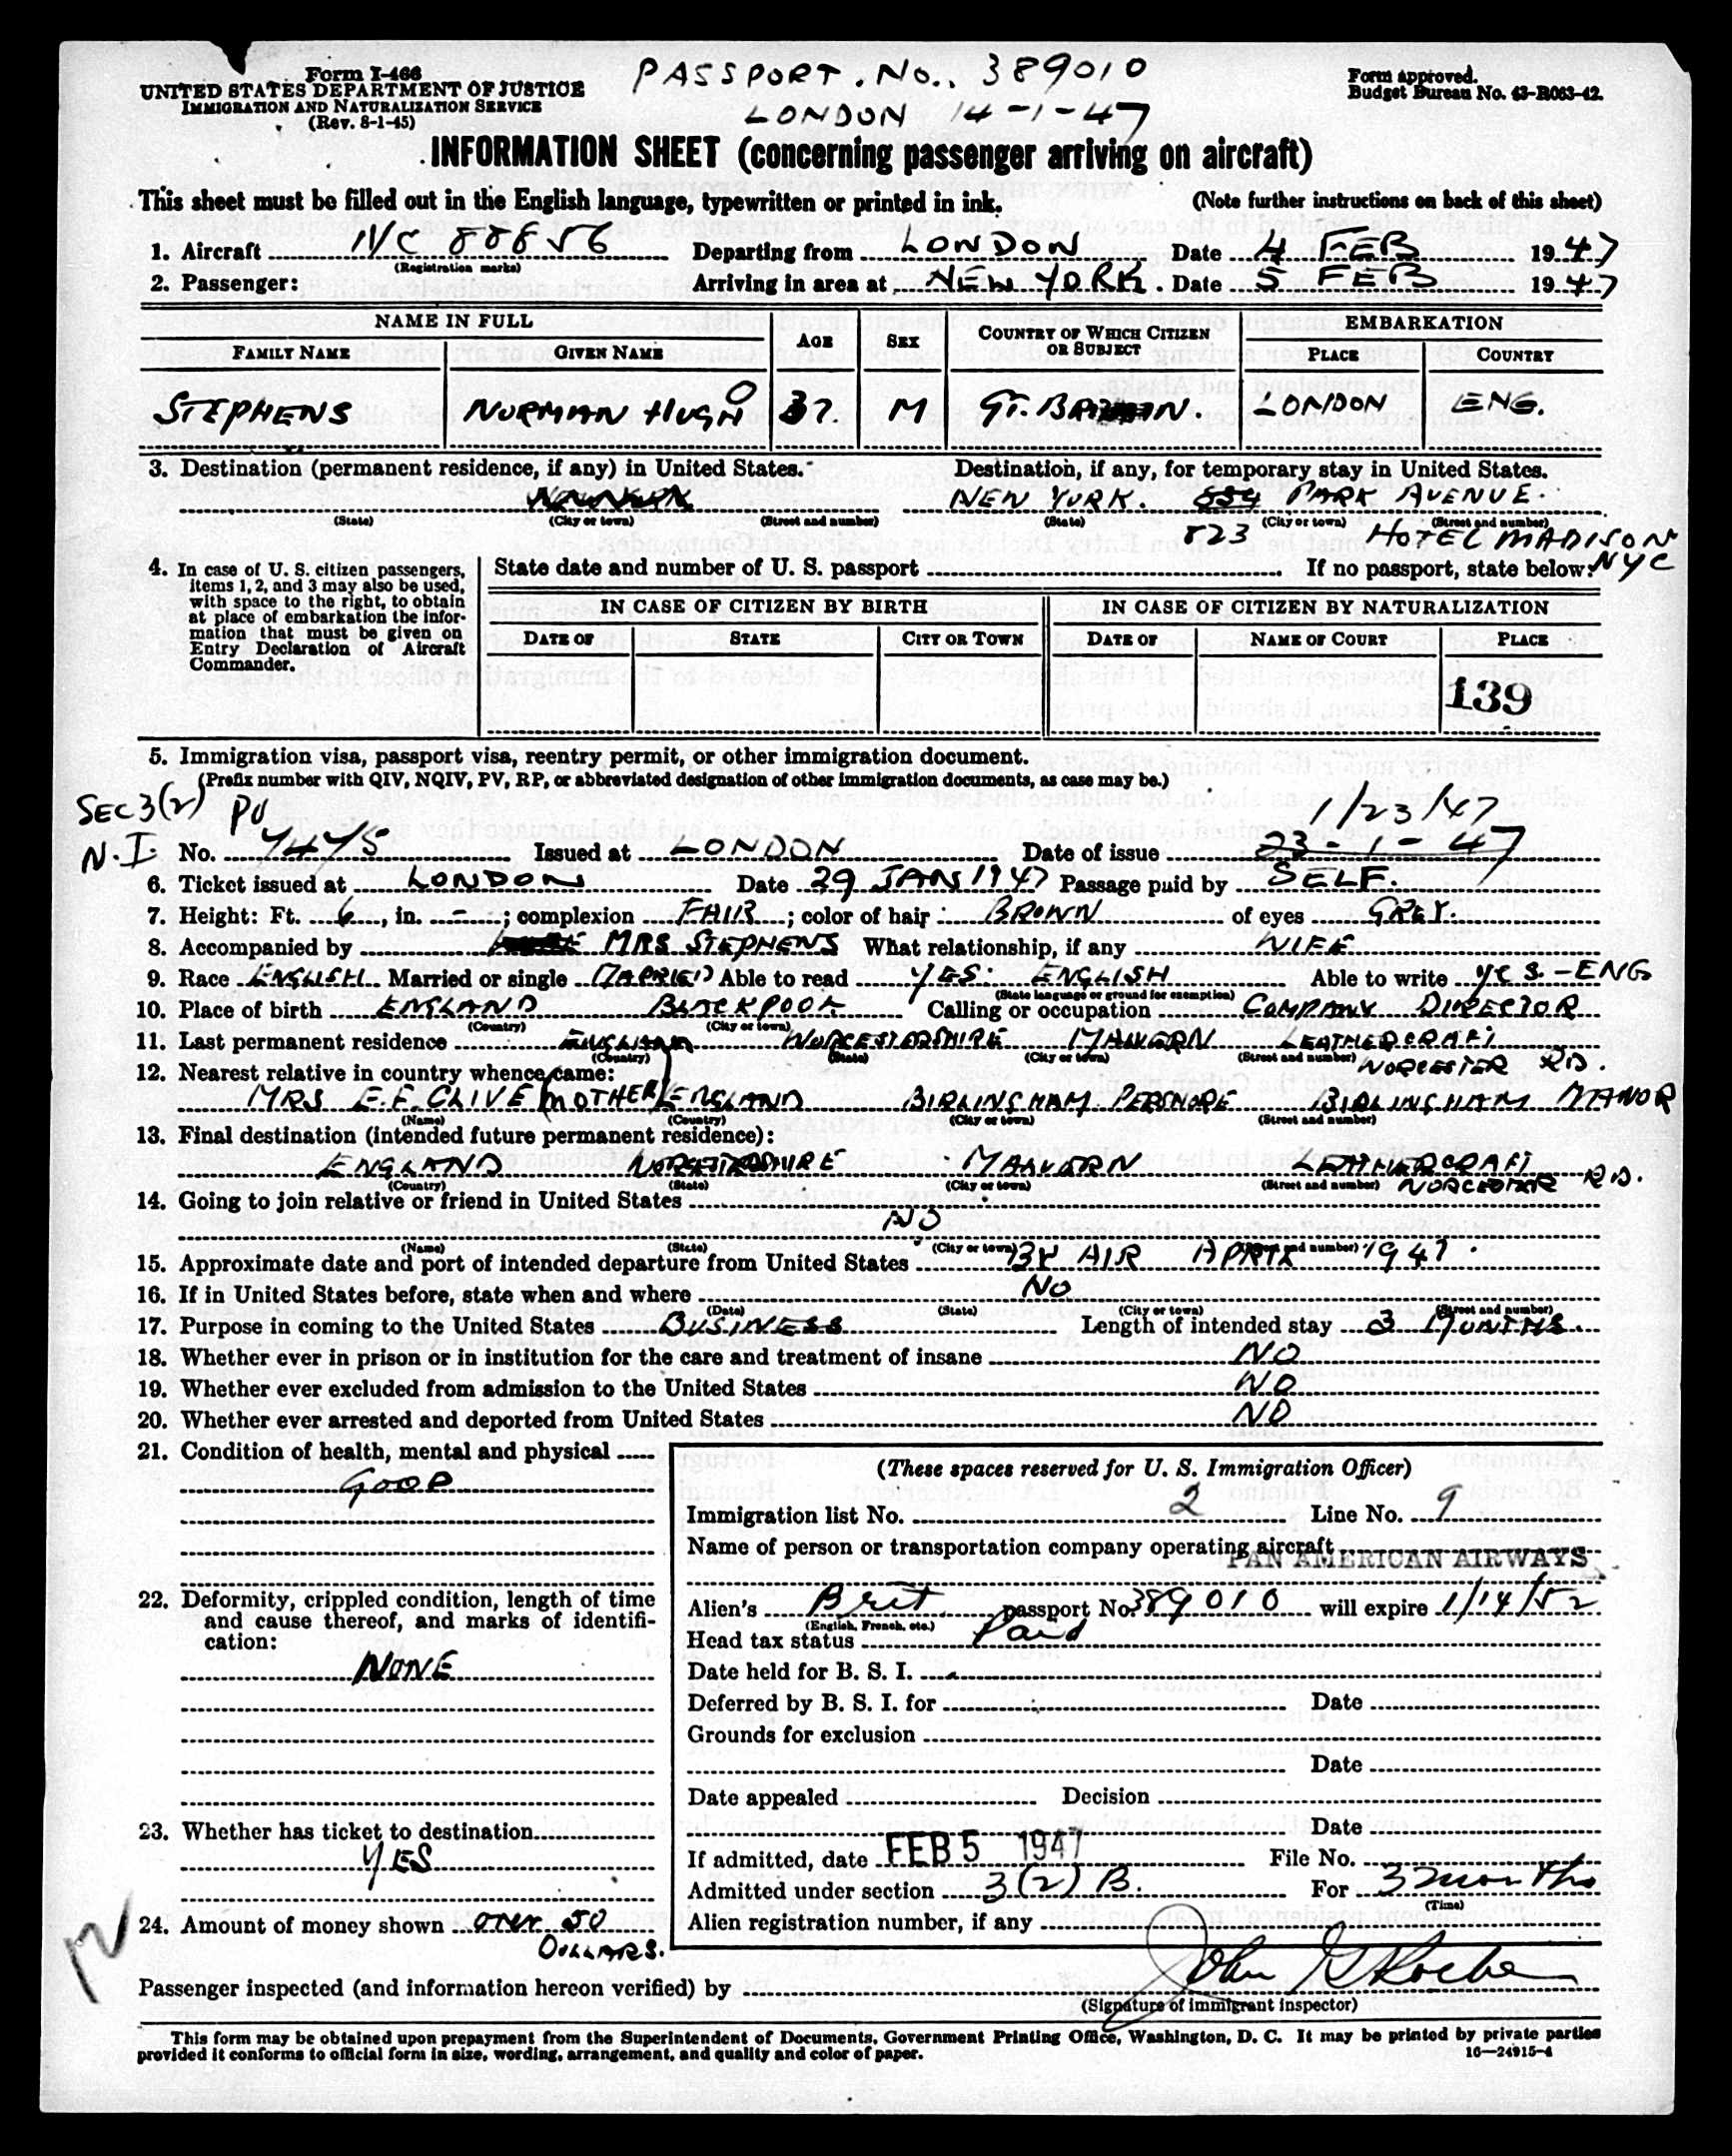 Form I-466
UNITED STATES DEPARTMENT OF JUSTICE
IMMIGRATION AND NATURALIZATION SERVICE
(Rev. 8-1-45)
PASSPORT. No.. 389010
LONDON 14-1-47
Form approved.
Budget Bureau No. 43-R063-42.
INFORMATION SHEET (concerning passenger arriving on aircraft)
This sheet must be filled out in the English language, typewritten or printed in ink. (Note further instructions on back of this sheet)
1. Aircraft NC 88856 Departing from LONDON Date 4 FEB 1947
(Registration marks)
2. Passenger: Arriving in area at NEW YORK. Date 5 FEB 1947
NAME IN FULL AGE SEX COUNTRY OF WHICH CITIZEN OR SUBJECT EMBARKATION
FAMILY NAME GIVEN NAME PLACE COUNTRY
STEPHENS NORMAN HUGH 37. M GT. BRITAIN. LONDON ENG.
3. Destination (permanent residence, if any) in United States. Destination, if any, for temporary stay in United States.
NEW YORK. PARK AVENUE.
(State) (City or town) (Street and number) (State) (City or town) (Street and number)
823 HOTEL MADISON
NYC
4. In case of U. S. citizen passengers, items 1, 2, and 3 may also be used, with space to the right, to obtain at place of embarkation the information that must be given on Entry Declaration of Aircraft Commander.
State date and number of U. S. passport If no passport, state below:
IN CASE OF CITIZEN BY BIRTH IN CASE OF CITIZEN BY NATURALIZATION
DATE OF STATE CITY OR TOWN DATE OF NAME OF COURT PLACE
139
5. Immigration visa, passport visa, reentry permit, or other immigration document.
(Prefix number with QIV, NQIV, PV, RP, or abbreviated designation of other immigration documents, as case may be.)
SEC 3(2) PV 1/23/47
N.I. No. 7475 Issued at LONDON Date of issue 23-1-47
6. Ticket issued at LONDON Date 29 JAN 1947 Passage paid by SELF.
7. Height: Ft. 6, in. -; complexion FAIR; color of hair BROWN of eyes GREY.
8. Accompanied by MRS STEPHENS What relationship, if any WIFE
9. Race ENGLISH Married or single MARRIED Able to read YES. ENGLISH Able to write YES.-ENG
(State language or ground for exemption)
10. Place of birth ENGLAND BLACKPOOL Calling or occupation COMPANY DIRECTOR
(Country) (City or town)
11. Last permanent residence ENGLAND WORCESTERSHIRE MALVERN LEATHERCRAFT
(Country) (State) (City or town) (Street and number) WORCESTER RD.
12. Nearest relative in country whence came:
MRS E.F. CLIVE (MOTHER) ENGLAND BIRLINGHAM PERSHORE BIRLINGHAM MANOR
(Name) (Country) (City or town) (Street and number)
13. Final destination (intended future permanent residence):
ENGLAND WORCESTERSHIRE MALVERN LEATHERCRAFT
(Country) (State) (City or town) (Street and number) WORCESTER RD.
14. Going to join relative or friend in United States
NO
(Name) (State) (City or town) (Street and number)
15. Approximate date and port of intended departure from United States BY AIR APRIL 1947.
16. If in United States before, state when and where NO
(Date) (State) (City or town) (Street and number)
17. Purpose in coming to the United States BUSINESS Length of intended stay 3 MONTHS.
18. Whether ever in prison or in institution for the care and treatment of insane NO
19. Whether ever excluded from admission to the United States NO
20. Whether ever arrested and deported from United States NO
21. Condition of health, mental and physical
GOOD
22. Deformity, crippled condition, length of time and cause thereof, and marks of identification:
NONE
23. Whether has ticket to destination
YES
24. Amount of money shown over 50
DOLLARS.
(These spaces reserved for U. S. Immigration Officer)
Immigration list No. 2 Line No. 9
Name of person or transportation company operating aircraft PAN AMERICAN AIRWAYS
Alien's Brit. passport No. 389010 will expire 1/14/52
(English, French, etc.)
Head tax status Paid
Date held for B. S. I.
Deferred by B. S. I. for Date
Grounds for exclusion
Date
Date appealed Decision
Date
If admitted, date FEB 5 1947 File No.
Admitted under section 3(2) B. For 3 months
(Time)
Alien registration number, if any
Passenger inspected (and information hereon verified) by John
(Signature of immigrant inspector)
This form may be obtained upon prepayment from the Superintendent of Documents, Government Printing Office, Washington, D. C. It may be printed by private parties
provided it conforms to official form in size, wording, arrangement, and quality and color of paper. 16—24915-4